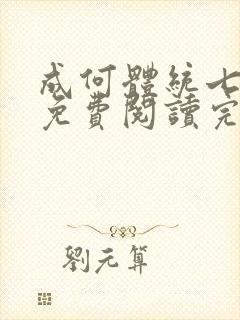 成何體統七
免費閱讀完
劉元算